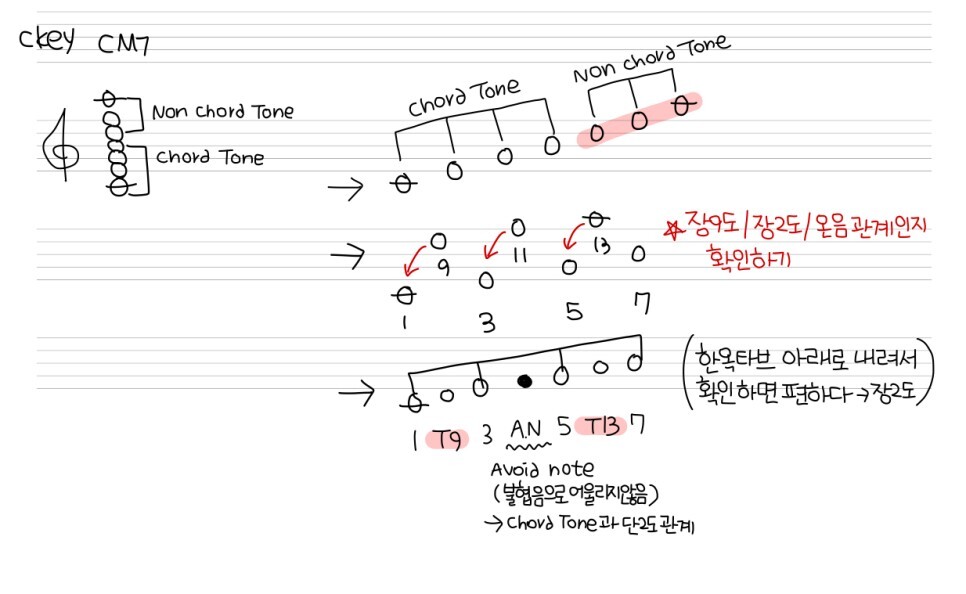 Ckey CM7
Non Chord Tone
Chord Tone
Chord Tone
Non chord Tone
9 11 13
1 3 5 7
☆장9도/장2도/온음관계인지
확인하기
(한옥타브 아래로 내려서
확인하면 편하다→장2도)
1 T9 3 A.N 5 T13 7
Avoid note
(불협음으로어울리지않음)
→Chord Tone과 단2도관계